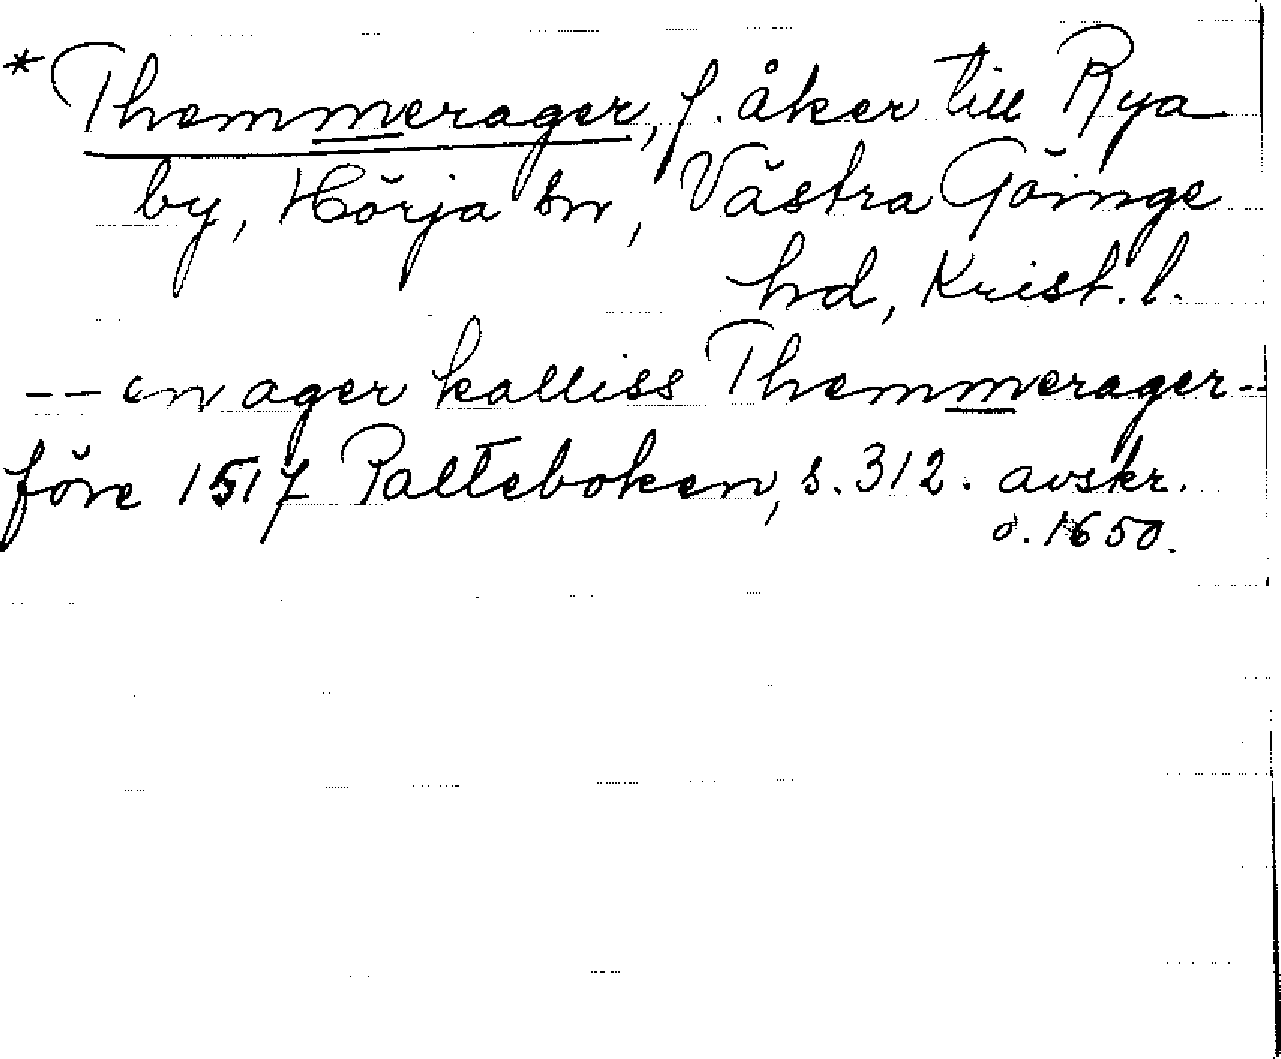 *Themmerager, f. åker till Rya
by, Hörja sn, Västra Göinge
hd, Krist. l.
-- en ager kalliss Themmerager --
före 1517 Palteboken, s. 312. avskr.
o. 1650.